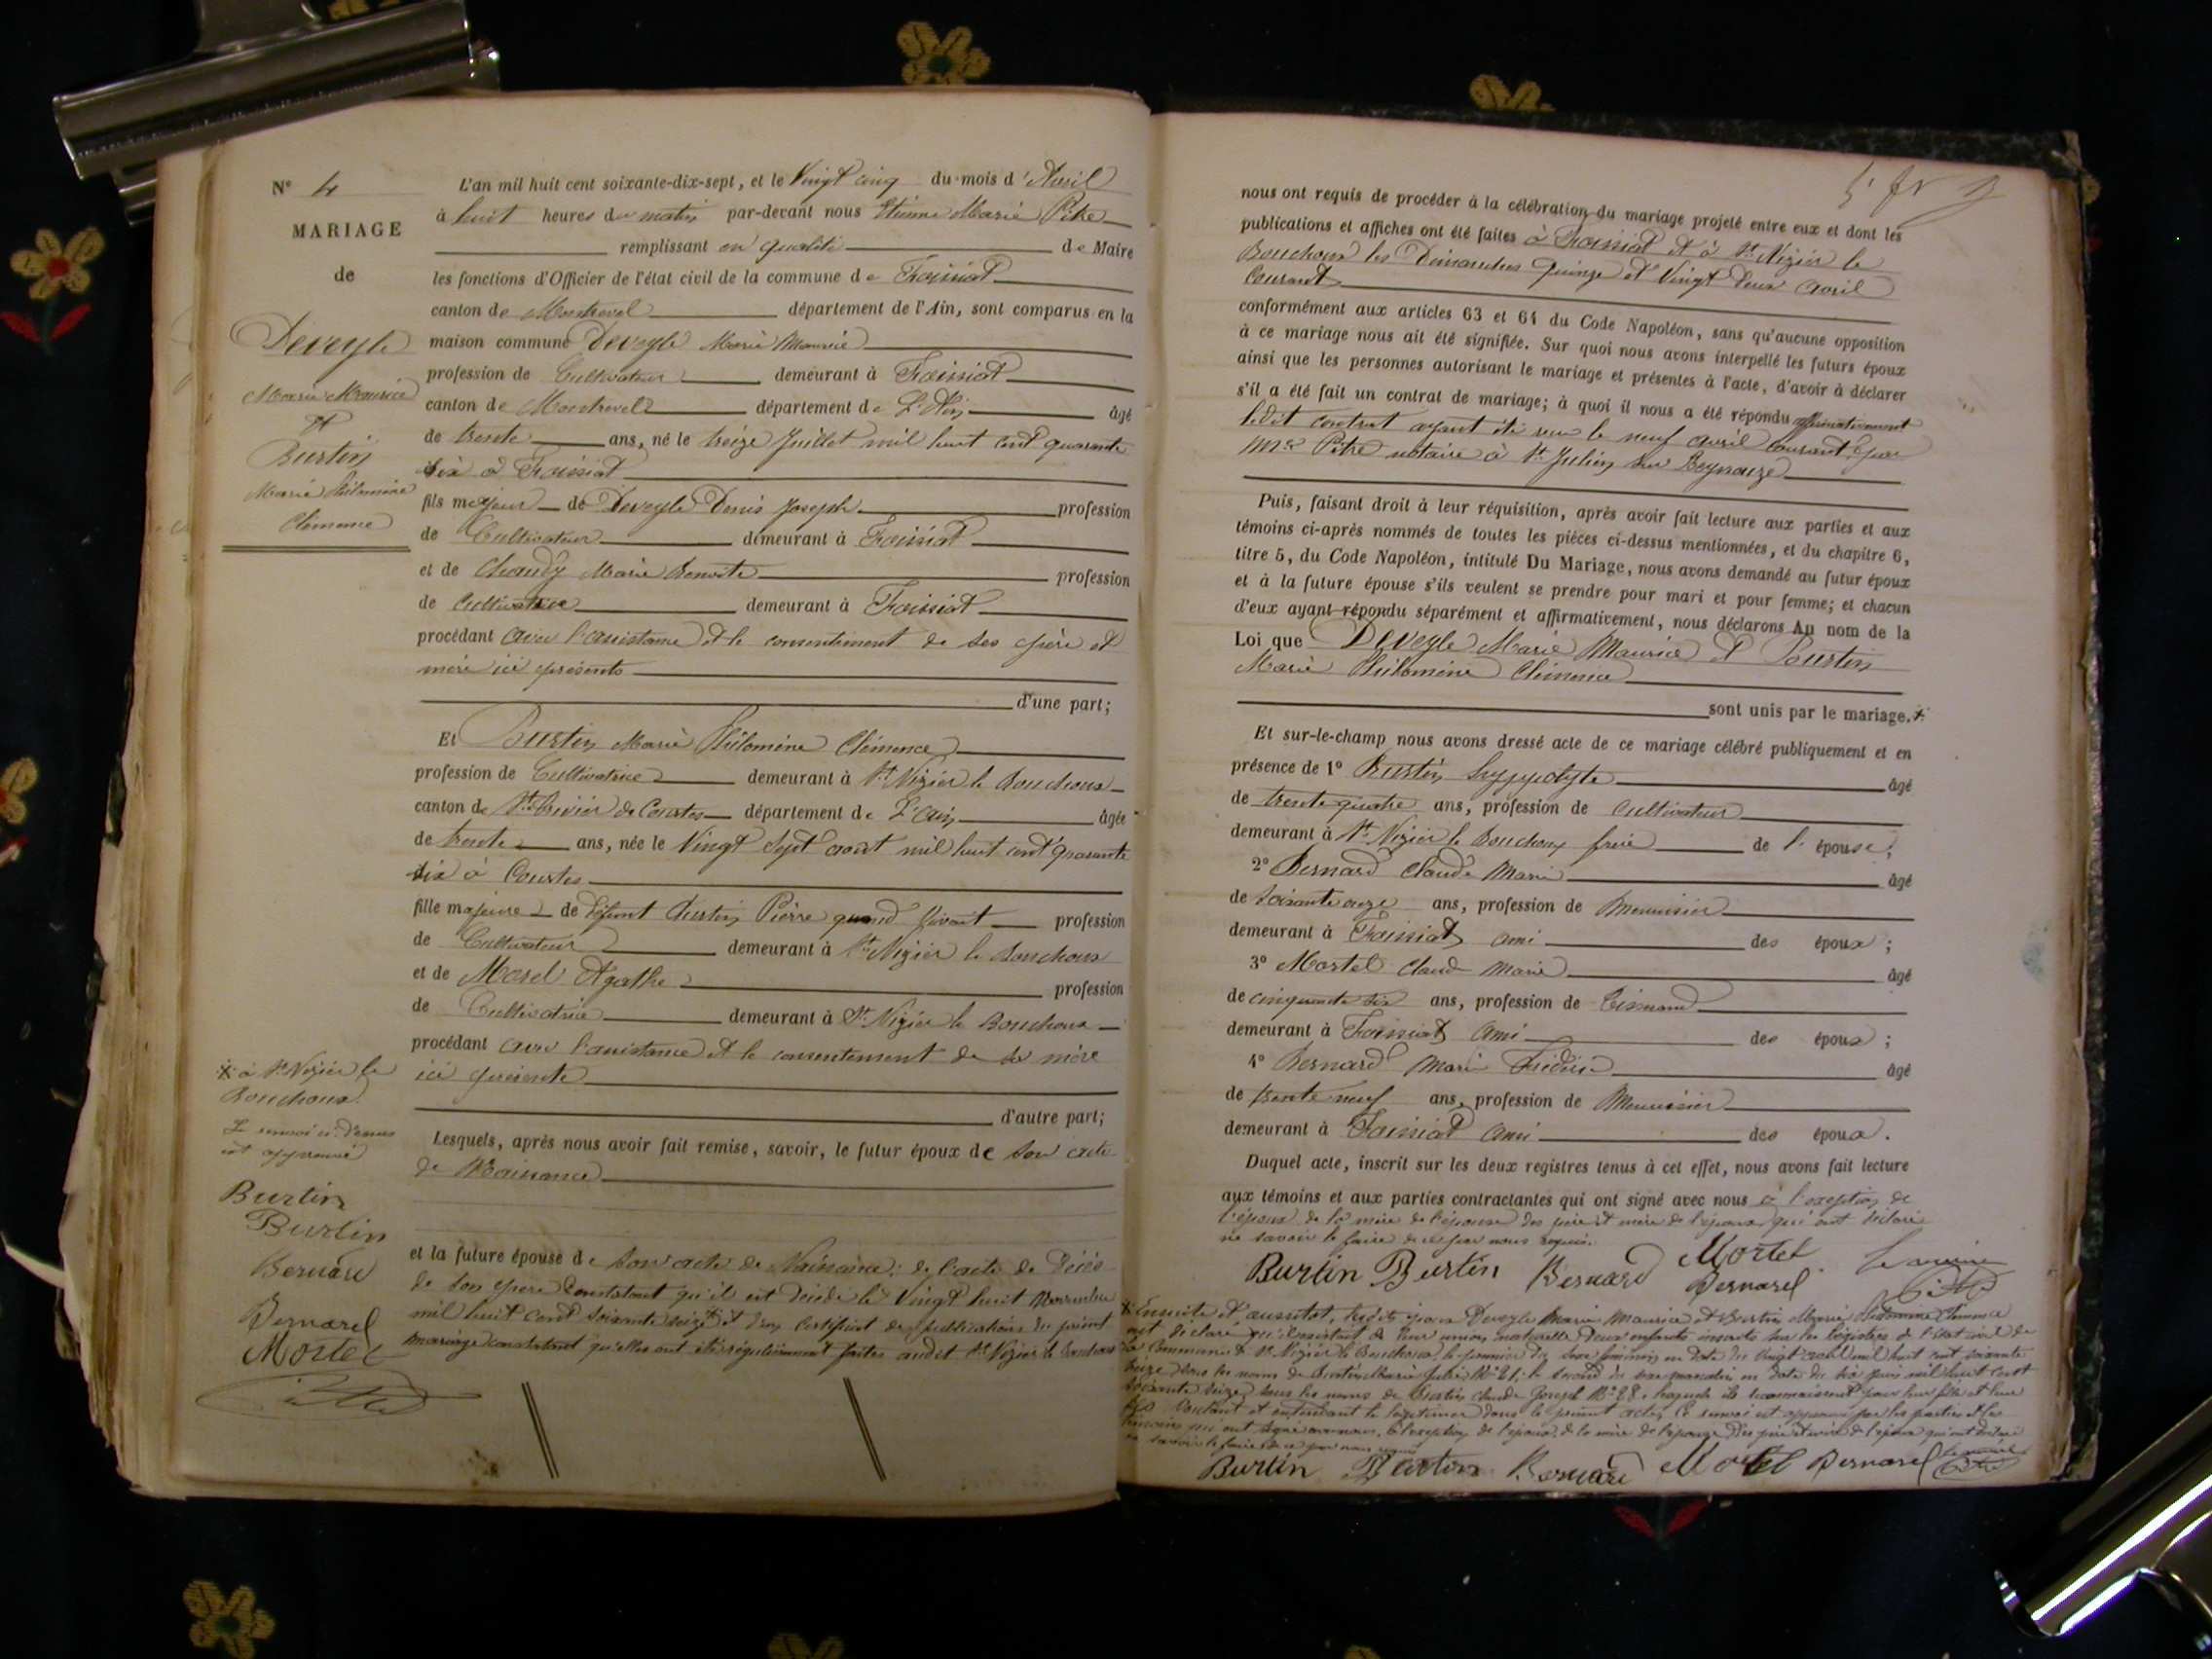 N° 4
MARIAGE
de
Deveyle
Marie Maurice
et
Burtin
Marie Philomène
Clémence
L'an mil huit cent soixante-dix-sept, et le Vingt cinq du mois d'Avril
à huit heures du matin par-devant nous Etienne Marie Pitre
remplissant en qualité de Maire
les fonctions d'Officier de l'état civil de la commune de Foissiat
canton de Montrevel département de l'Ain, sont comparus en la
maison commune Deveyle Marie Maurice
profession de Cultivateur demeurant à Foissiat
canton de Montrevel département de L'Ain âgé
de trente ans, né le treize Juillet mil huit cent quarante
six à Foissiat
fils majeur de Deveyle Denis Joseph profession
de Cultivateur demeurant à Foissiat
et de Chaudy Marie Benoite profession
de Cultivatrice demeurant à Foissiat
procédant avec l'assistance et le consentement de ses père et
mère ici présents
d'une part;
Et Burtin Marie Philomène Clémence
profession de Cultivatrice demeurant à St Nizier le Bouchoux
canton de St Trivier de Courtes département de L'Ain âgée
de trente ans, née le Vingt Sept août mil huit cent quarante
six à Courtes
fille majeure de défunt Burtin Pierre quand vivait profession
de Cultivateur demeurant à St Nizier le Bouchoux
et de Morel Agathe profession
de Cultivatrice demeurant à St Nizier le Bouchoux
procédant avec l'assistance et le consentement de sa mère
ici présente
d'autre part;
Lesquels, après nous avoir fait remise, savoir, le futur époux de son acte
de Naissance
et la future épouse de son acte de Naissance; de l'acte de Décès
de son père Constatant qu'il est décédé le Vingt huit Novembre
mil huit cent soixante seize et d'un Certificat de publications du présent
mariage constatant qu'elles ont été régulièrement faites audit St Nizier le Bouchoux
à St Nizier le
Bouchoux.
Le renvoi ci-dessus
est approuvé
Burtin
Burtin
Bernard
Bernard
Mortel
nous ont requis de procéder à la célébration du mariage projeté entre eux et dont les
publications et affiches ont été faites à Foissiat et à St Nizier le
Bouchoux les Dimanches Quinze et Vingt Deux Avril
Courant
conformément aux articles 63 et 64 du Code Napoléon, sans qu'aucune opposition
à ce mariage nous ait été signifiée. Sur quoi nous avons interpellé les futurs époux
ainsi que les personnes autorisant le mariage et présentes à l'acte, d'avoir à déclarer
s'il a été fait un contrat de mariage; à quoi il nous a été répondu affirmativement
ledit contrat ayant été reçu le neuf avril courant par
Me Pitre notaire à St Julien sur Reyssouze
Puis, faisant droit à leur réquisition, après avoir fait lecture aux parties et aux
témoins ci-après nommés de toutes les pièces ci-dessus mentionnées, et du chapitre 6,
titre 5, du Code Napoléon, intitulé Du Mariage, nous avons demandé au futur époux
et à la future épouse s'ils veulent se prendre pour mari et pour femme; et chacun
d'eux ayant répondu séparément et affirmativement, nous déclarons Au nom de la
Loi que Deveyle Marie Maurice et Burtin
Marie Philomène Clémence
sont unis par le mariage.
Et sur-le-champ nous avons dressé acte de ce mariage célébré publiquement et en
présence de 1° Burtin Hyppolyte âgé
de trente quatre ans, profession de cultivateur
demeurant à St Nizier le Bouchoux frère de l'épouse;
2° Bernard Claude Marie âgé
de soixante onze ans, profession de Menuisier
demeurant à Foissiat ami des époux;
3° Mortel Claude Marie âgé
de cinquante six ans, profession de Tisserand
demeurant à Foissiat ami des époux;
4° Bernard Marie Frédéric âgé
de trente neuf ans, profession de Menuisier
demeurant à Foissiat ami des époux.
Duquel acte, inscrit sur les deux registres tenus à cet effet, nous avons fait lecture
aux témoins et aux parties contractantes qui ont signé avec nous à l'exception de
l'époux de la mère de l'épouse des père et mère de l'époux qui ont déclaré
ne savoir le faire de ce par nous requis.
Burtin Burtin Bernard Mortel Bernard Le maire
Pitre
Ensuite et aussitôt, lesdits époux Deveyle Marie Maurice et Burtin Marie Philomène Clémence
ont déclaré qu'il existait de leur union naturelle Deux enfants inscrits sur les registres de l'état civil de
la Commune de St Nizier le Bouchoux, le premier du sexe féminin en date du vingt avril mil huit cent soixante
treize sous les noms de Burtin Marie Julie N° 21; le second du sexe masculin en date du six juin mil huit cent
soixante seize sous les noms de Burtin Claude Joseph N° 28, lesquels ils reconnaissent pour leur fille et leur
fils Voulant et entendant le légitimer dans le présent acte, Ce renvoi est approuvé par les parties et les
témoins qui ont signé avec nous, à l'exception de l'époux, de la mère de l'épouse, Des père et mère de l'époux qui ont déclaré
ne savoir le faire de ce par nous requis
Burtin Burtin Bernard Mortel Bernard Le maire
Pitre